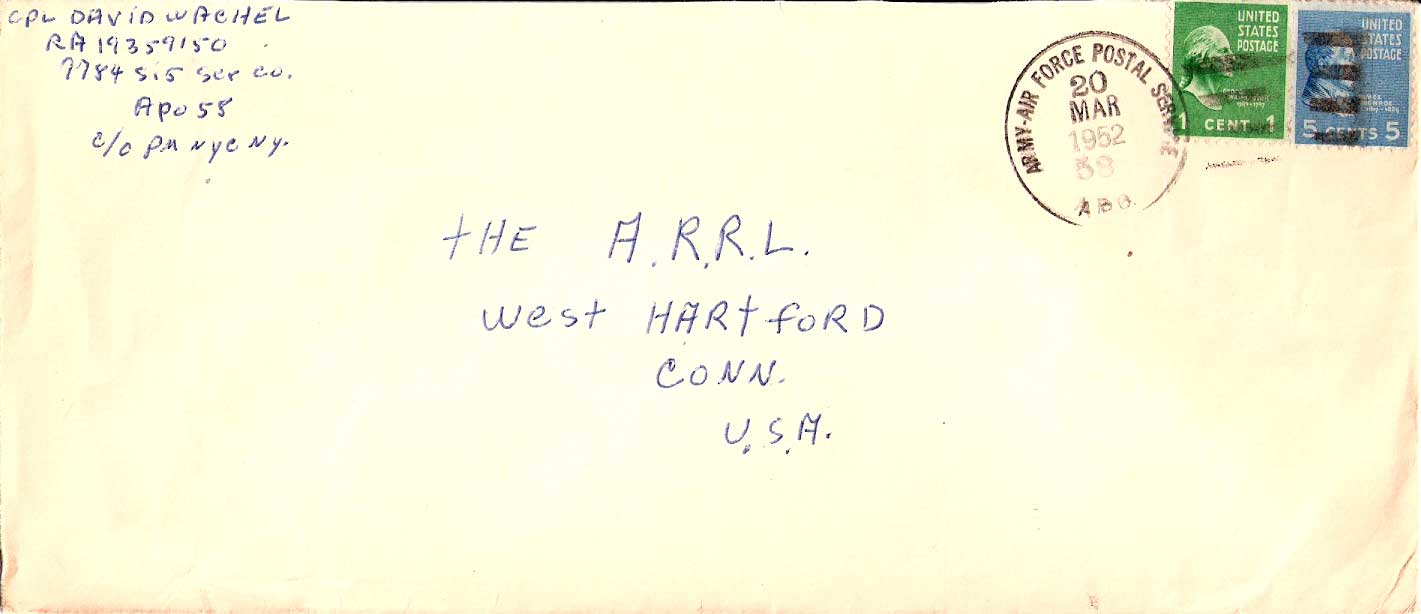 CPL DAVID WACHEL
RA 19359150
7784 SIG Ser Co.
APO 58
c/o PM NYC NY.
ARMY-AIR FORCE POSTAL SERVICE
20
MAR
1952
58
APO
UNITED
STATES
POSTAGE
1 CENT 1
UNITED
STATES
POSTAGE
5 CENTS 5
THE A.R.R.L.
West HARTFORD
CONN.
U.S.A.